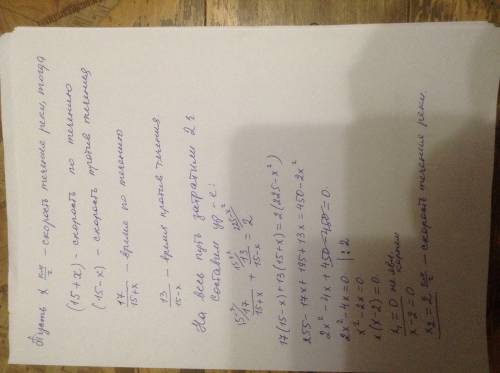 Пусть x км/ч - скорость течение реки, тогда
(15+x) - скорость по течению
(15-x) - скорость против течения
17/15+x - время по течению
13/15-x - время против течения
На весь путь затратили 2 ч.
составим ур-е:
15-x/17/15+x + 15+x/13/15-x = 225-x²/2
17(15-x)+13(15+x)=2(225-x²)
255-17x+195+13x=450-2x²
2x²-4x+450-450=0.
2x²-4x=0 |:2
x²-2x=0
x(x-2)=0.
x₁=0 не явл. корнем
x-2=0
x₂=2 км/ч - скорость течения реки.